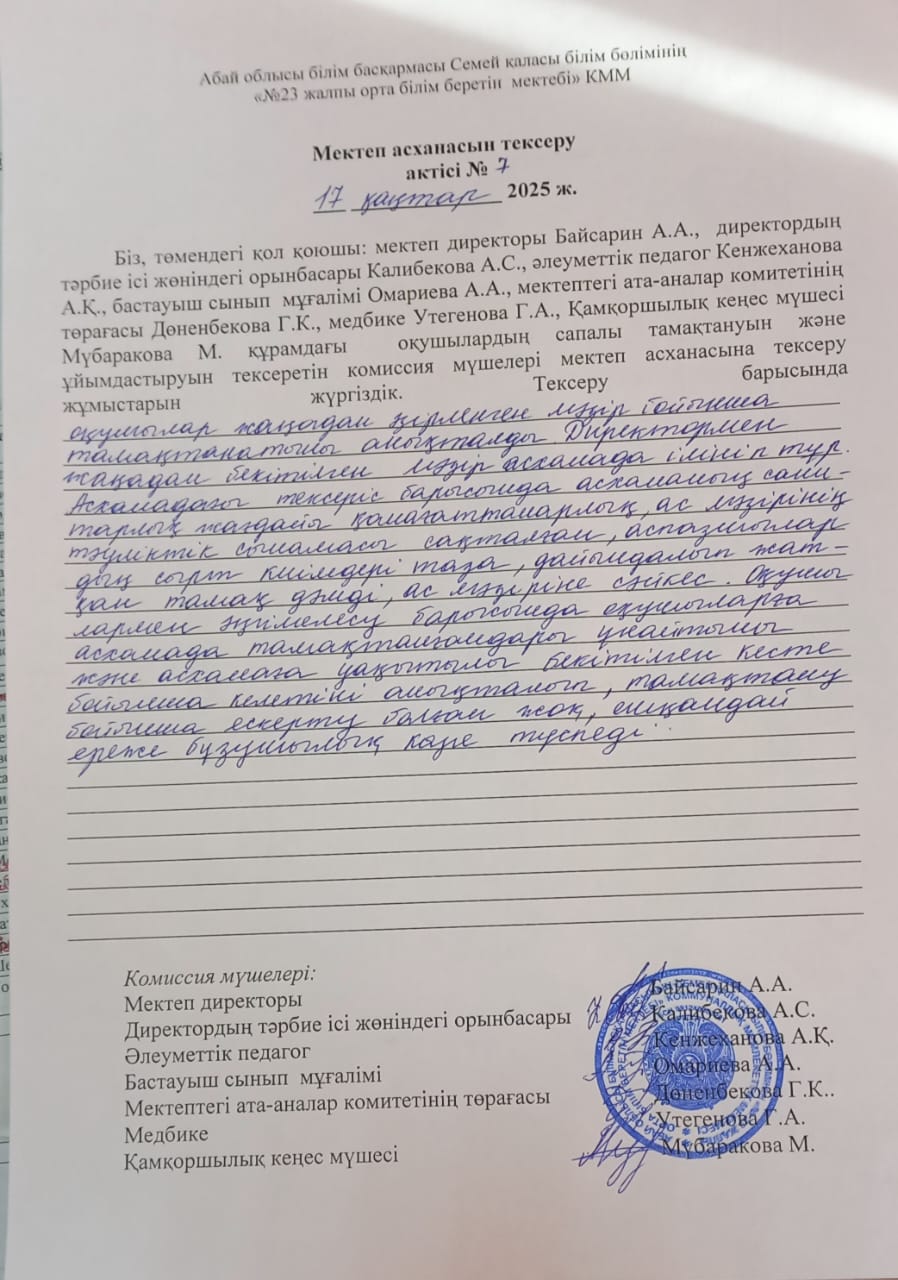 Абай облысы білім басқармасы Семей қаласы білім бөлімінің
«№23 жалпы орта білім беретін мектебі» КММ
Мектеп асханасын тексеру
актісі № 7
17 қаңтар 2025 ж.
Біз, төмендегі қол қоюшы: мектеп директоры Байсарин А.А., директордың
тәрбие ісі жөніндегі орынбасары Калибекова А.С., әлеуметтік педагог Кенжеханова
А.Қ., бастауыш сынып мұғалімі Омариева А.А., мектептегі ата-аналар комитетінің
төрағасы Дөненбекова Г.К., медбике Утегенова Г.А., Қамқоршылық кеңес мүшесі
Мұбаракова М. құрамдағы оқушылардың сапалы тамақтануын және
ұйымдастыруын тексеретін комиссия мүшелері мектеп асханасына тексеру
жұмыстарын жүргіздік. Тексеру барысында
оқушылар жаңадан әзірленген мәзір бойынша
тамақтанатыны анықталды Директормен
жаңадан бекітілген мәзір асханада ілініп тұр.
Асханадағы тексеріс барысында асхананың сани-
тарлық жағдайы қанағаттанарлық, ас мәзірінің
тәуліктік сынамасы сақталған, аспазшылар
дың сырт киімдері таза, дайындалып жат-
қан тамақ дәмді, ас мәзіріне сәйкес. Оқушы
лармен әңгімелесу барысында оқушыларға
асханада тамақтанғандары ұнайтыны
және асханаға уақытылы бекітілген кесте
бойынша келетіні анықталып, тамақтану
бойынша ескерту болған жоқ, ешқандай
ереже бұзушылық көзге түспеді.
Комиссия мүшелері:
Мектеп директоры Байсарин А.А.
Директордың тәрбие ісі жөніндегі орынбасары Калибекова А.С.
Әлеуметтік педагог Кенжеханова А.Қ.
Бастауыш сынып мұғалімі Омариева А.А.
Мектептегі ата-аналар комитетінің төрағасы Дөненбекова Г.К..
Медбике Утегенова Г.А.
Қамқоршылық кеңес мүшесі Мұбаракова М.